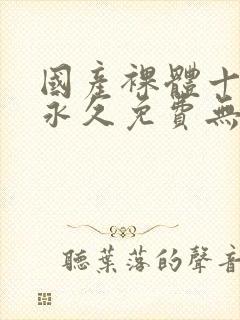 國產裸體十
永久免費無
聽葉落的聲音